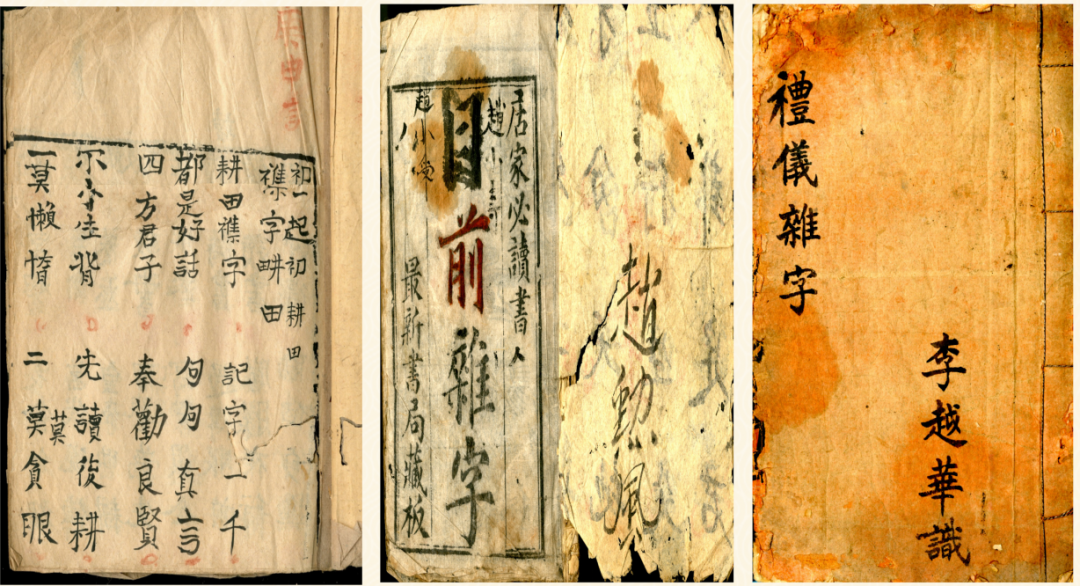 初一起初耕田
襍字畊田
耕田襍字 記字一千
都是好話 句句真言
四方君子 奉勸良賢
先讀後耕
一莫懶惰 二莫貪眼
莫
居家必讀書人
趙小
目前雜字
趙小
最新書局藏板
趙
禮儀雜字
李越華識